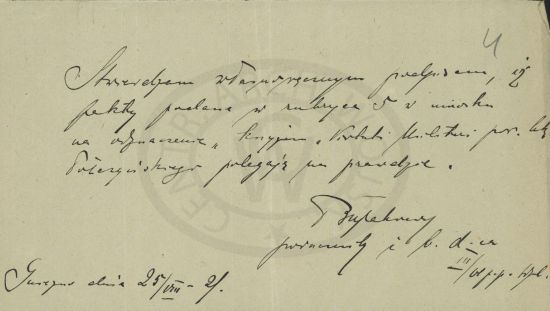 4
Stwierdzam własnoręcznym podpisem, iż
fakty podane w rubryce 5 wniosku
na odznaczenie „krzyżem „Virtuti Militari por.
polegają na prawdzie.
porucznik i b. d-ca
III/
dnia 25/VIII - 21.